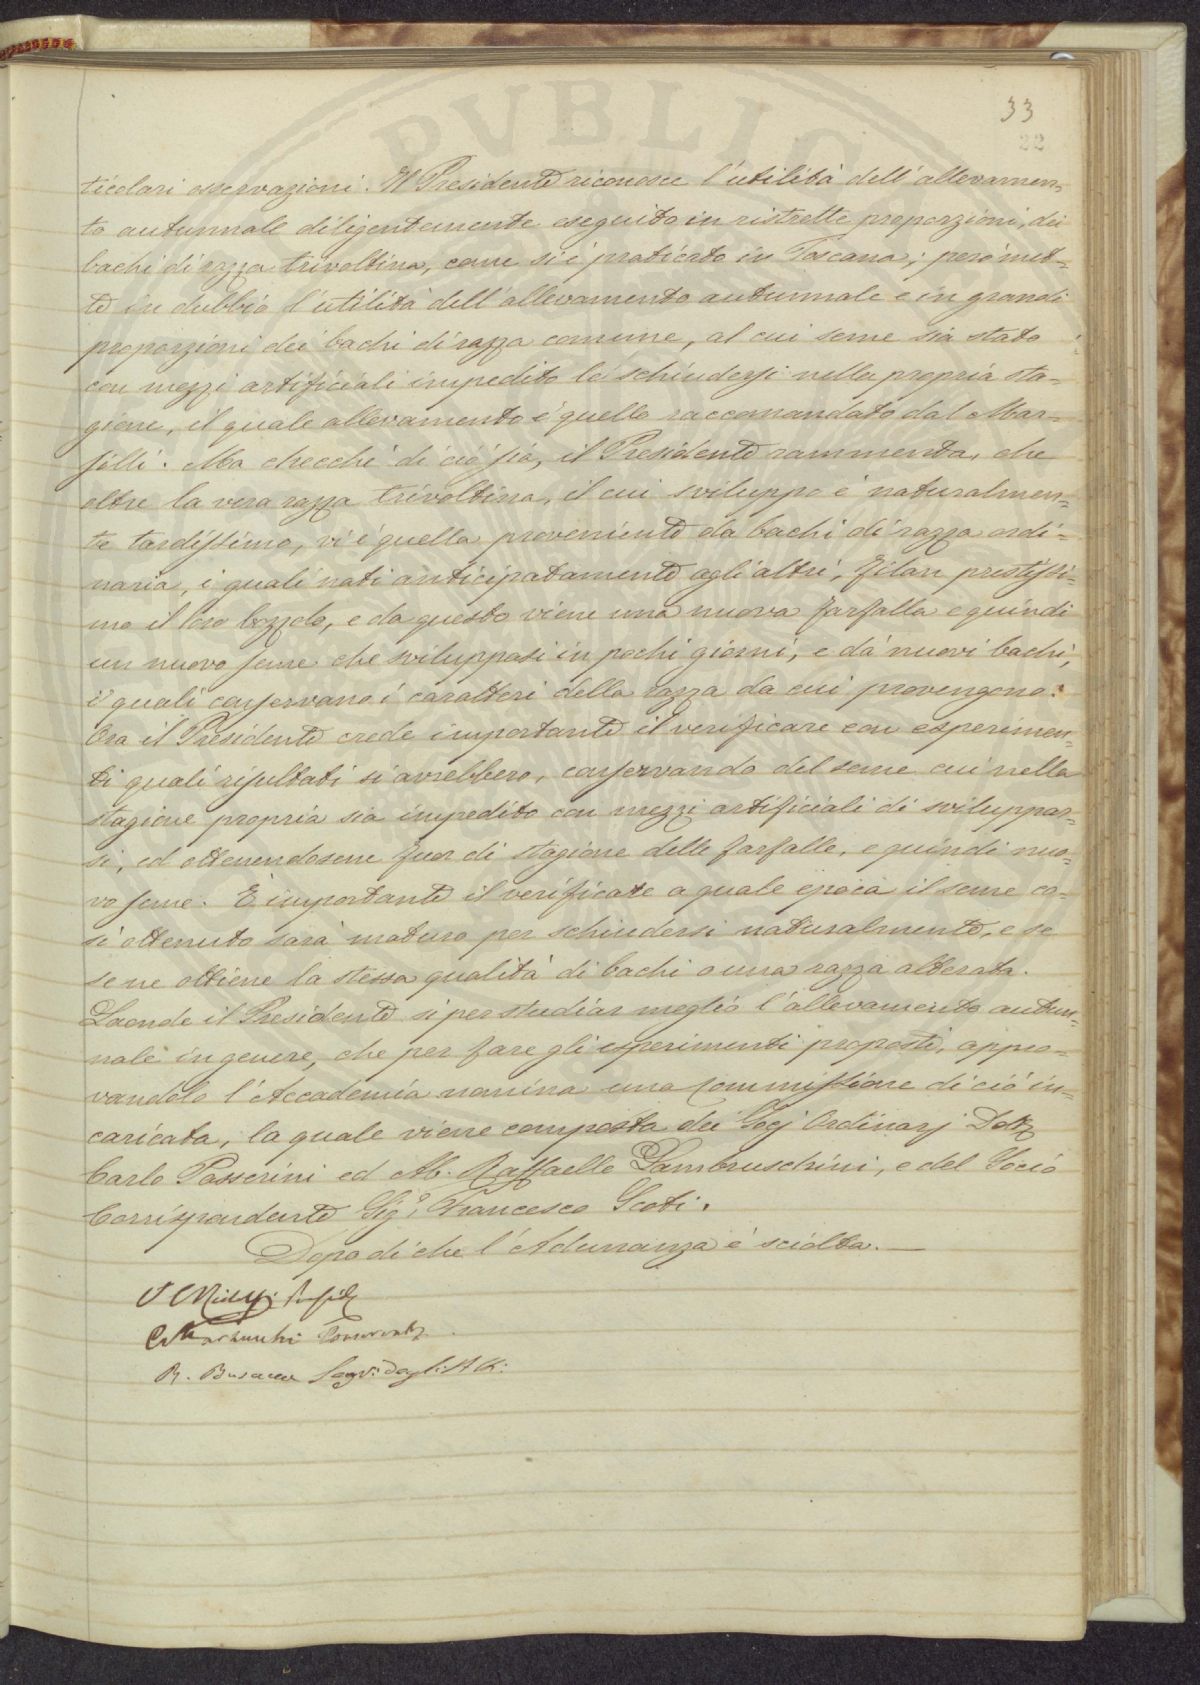 PVBLICÆ
33
22
ticolari osservazioni. Il Presidente riconosce l'utilità dell'allevamen=
to autunnale diligentemente eseguito in ristrette proporzioni, dei
bachi di razza trivoltina, come si è praticato in Toscana; però met=
te in dubbio l'utilità dell'allevamento autunnale e in grandi
proporzioni dei bachi di razza comune, al cui seme sia stato
con mezzi artificiali impedito lo schiudersi nella propria sta=
gione, il quale allevamento è quello raccomandato dal Mar=
filli. Ma checchè di ciò sia, il Presidente rammenta, che
oltre la vera razza trivoltina, il cui sviluppo è naturalmen=
te tardissimo, vi è quella proveniente da bachi di razza ordi=
naria, i quali nati anticipatamente agli altri, filan prestissi=
mo il loro bozzolo, e da questo viene una nuova farfalla e quindi
un nuovo seme che sviluppasi in pochi giorni, e dà nuovi bachi,
i quali conservano i caratteri della razza da cui provengono.
Ora il Presidente crede importante il verificare con esperimen=
ti quali risultati si avrebbero, conservando del seme cui nella
stagione propria sia impedito con mezzi artificiali di sviluppar=
si, ed ottenendosene fuor di stagione delle farfalle, e quindi nuo=
vo seme. È importante il verificare a quale epoca il seme co=
sì ottenuto sarà maturo per schiudersi naturalmente, e se
se ne ottiene la stessa qualità di bachi o una razza alterata.
Laonde il Presidente sì per studiar meglio l'allevamento autun=
nale in genere, che per fare gli esperimenti proposti, appro=
vandolo l'Accademia nomina una Commissione di ciò in=
caricata, la quale viene composta dei Socj Ordinarj Dott.
Carlo Passerini ed Ab. Raffaello Lambruschini, e del Socio
Corrispondente Sig.e Francesco Scoti.
Dopo di che l'Adunanza è sciolta.
Ridolfi Presid.
Conservat.
R. Busacca Segr: degli Atti: